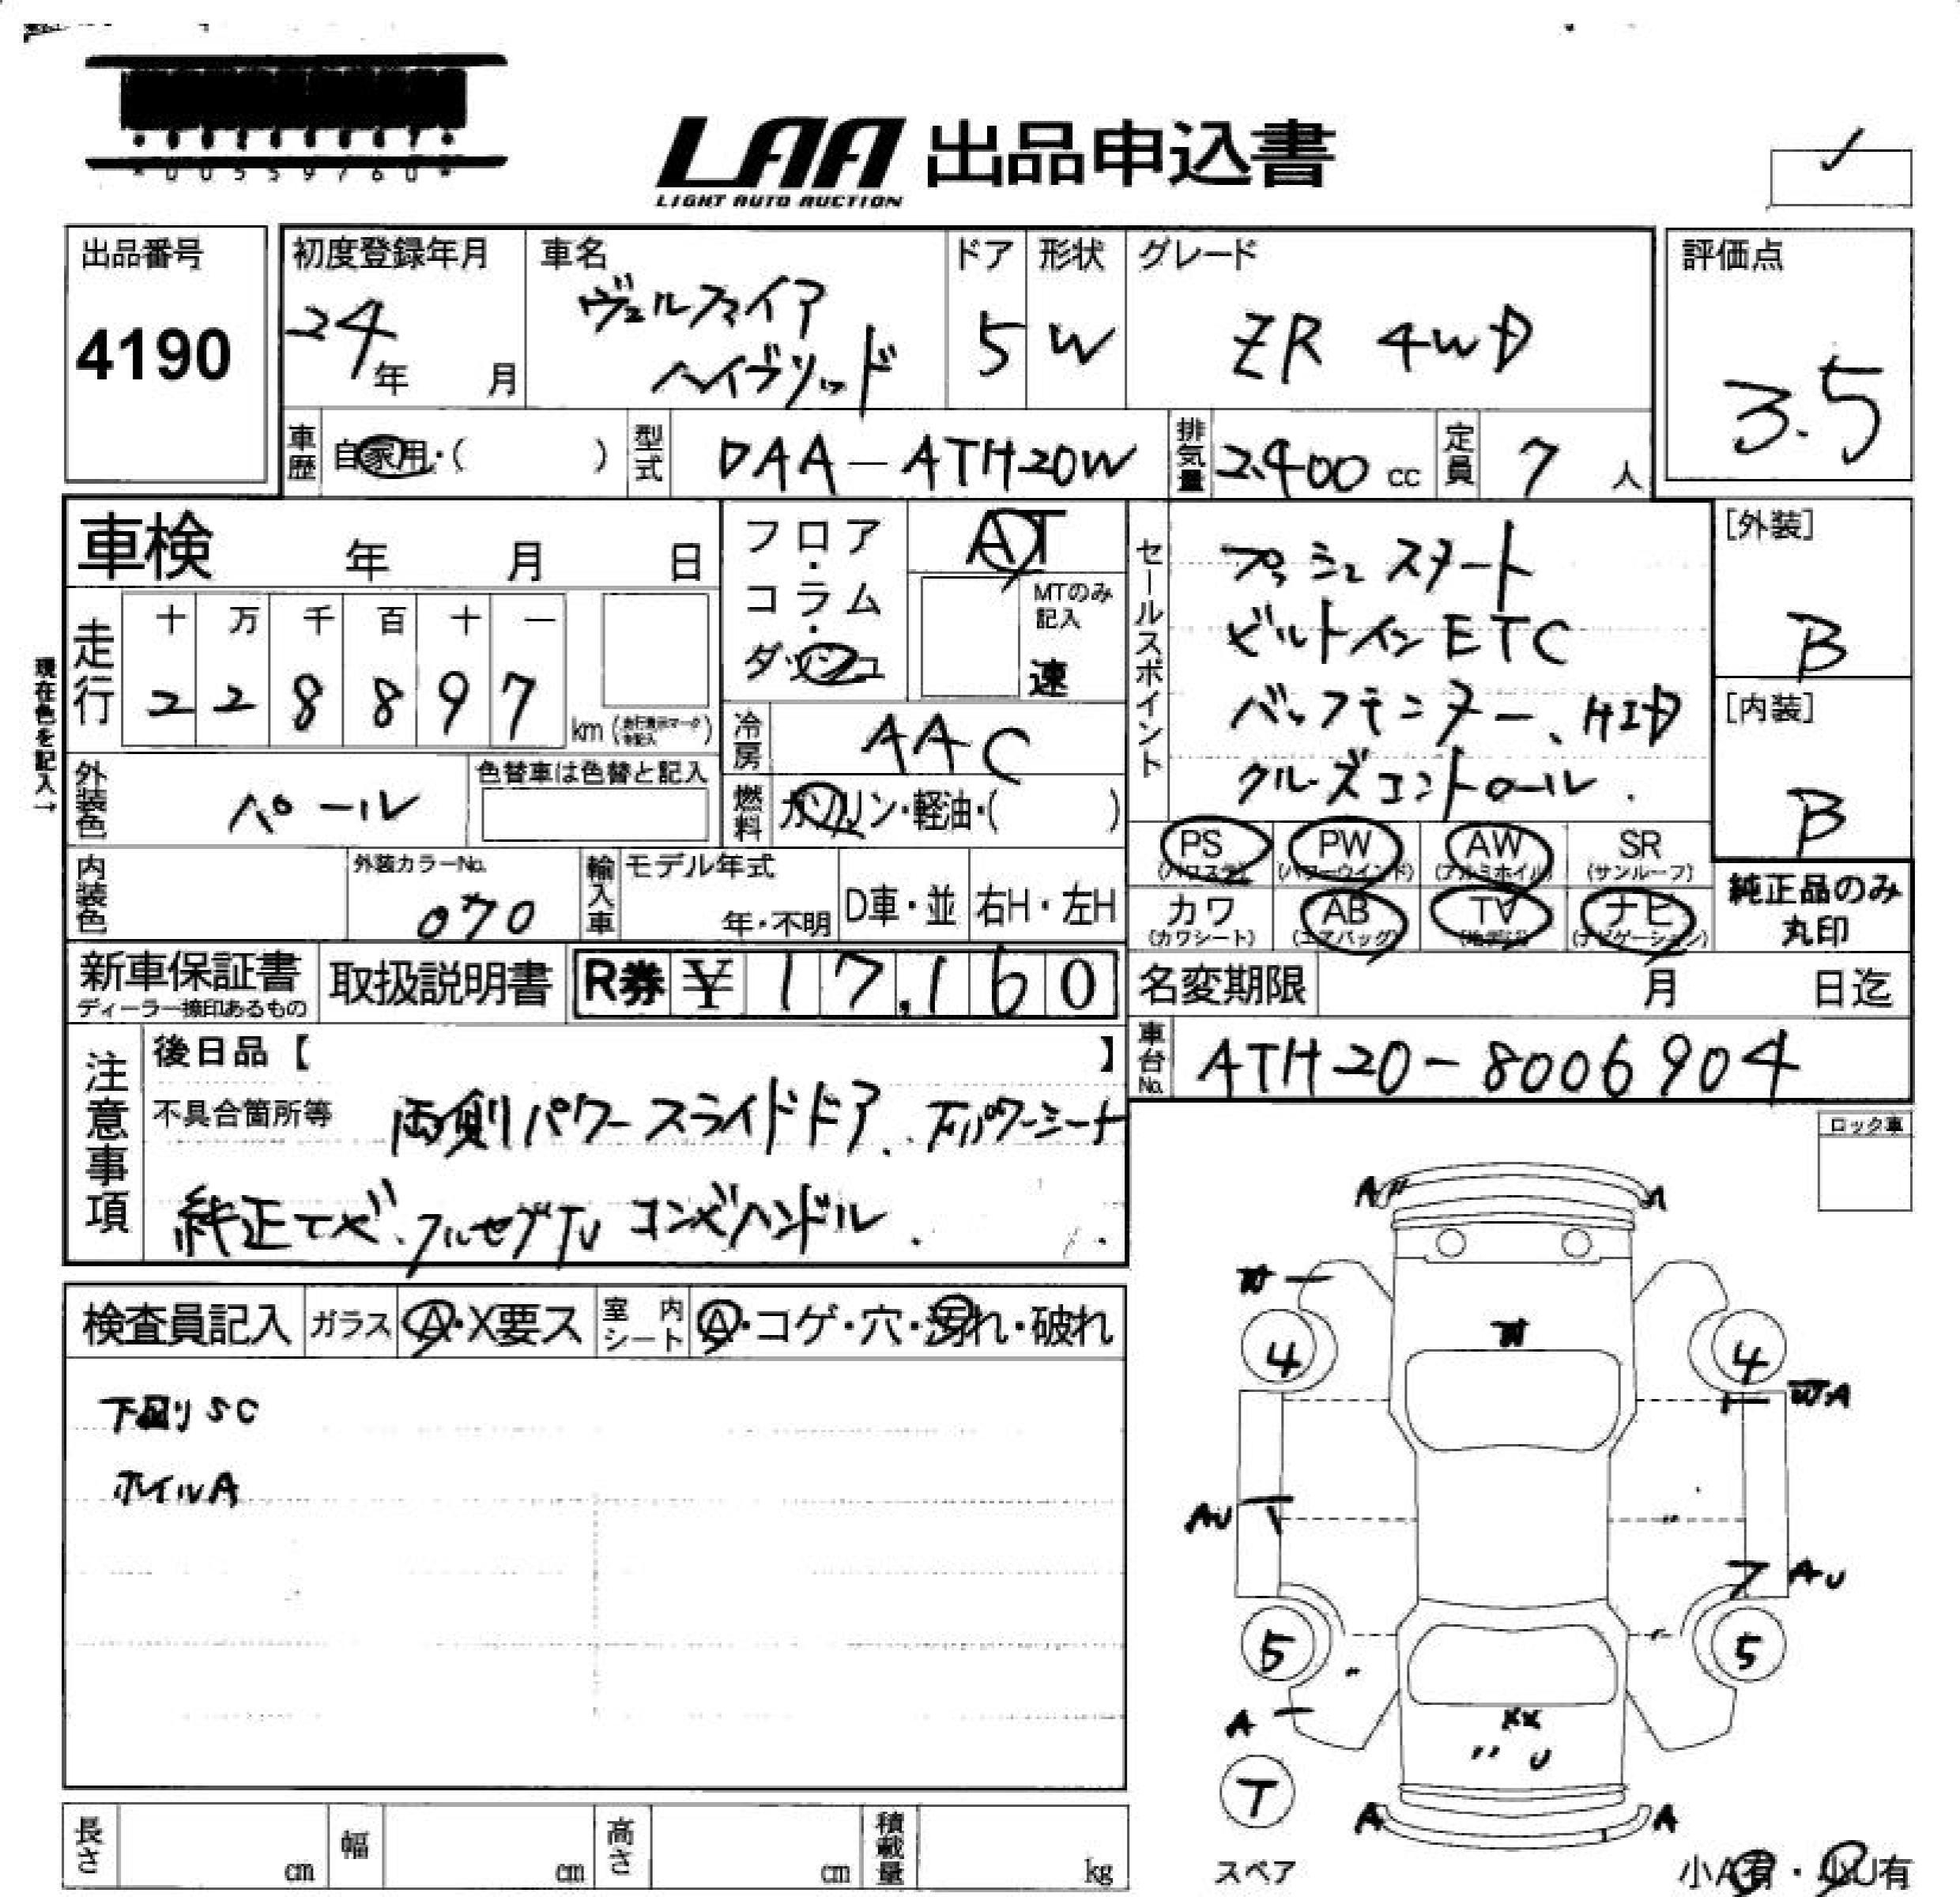 LAA 出品申込書
LIGHT AUTO AUCTION
出品番号
4190
初度登録年月
24年 月
車名
ヴェルファイア
ハイブリッド
ドア
5
形状
W
グレード
ZR 4WD
評価点
3.5
車歴 自家用・( )
型式 DAA-ATH20W
排気量 2400 cc
定員 7 人
車検 年 月 日
フロア・コラム・ダッシュ
AT
MTのみ記入
速
セールスポイント
プッシュスタート
ビルトインETC
バックモニター、HID
クルーズコントロール.
[外装]
B
[内装]
B
現在色を記入→
走行
十 万 千 百 十 一
2 2 8 8 9 7 km
冷房 AAC
外装色 パール
色替車は色替と記入
燃料 ガソリン・軽油・( )
内装色
外装カラーNo.
070
輸入車
モデル年式
年・不明
D車・並
右H・左H
PS
(パワステ)
PW
(パワーウインド)
AW
(アルミホイル)
SR
(サンルーフ)
カワ
(カワシート)
AB
(エアバッグ)
TV
ナビ
(ナビゲーション)
純正品のみ
丸印
新車保証書
ディーラー捺印あるもの
取扱説明書
R券 ¥ 17,160
名変期限 月 日迄
車台No. ATH20-8006904
注意事項
後日品【 】
不具合箇所等 両側パワースライドドア、パワーシート
純正ナビ、フルセグTV コンビハンドル.
ロック車
検査員記入
ガラス A・X要ス
室内シート A・コゲ・穴・汚れ・破れ
下回りSC
ホイルA
A〃
A
W
W
4
4
WA
AU
〃
AU
5
5
〃
A
XX
〃 U
T
A
A
スペア
小A有・小U有
長さ cm
幅 cm
高さ cm
積載量 kg